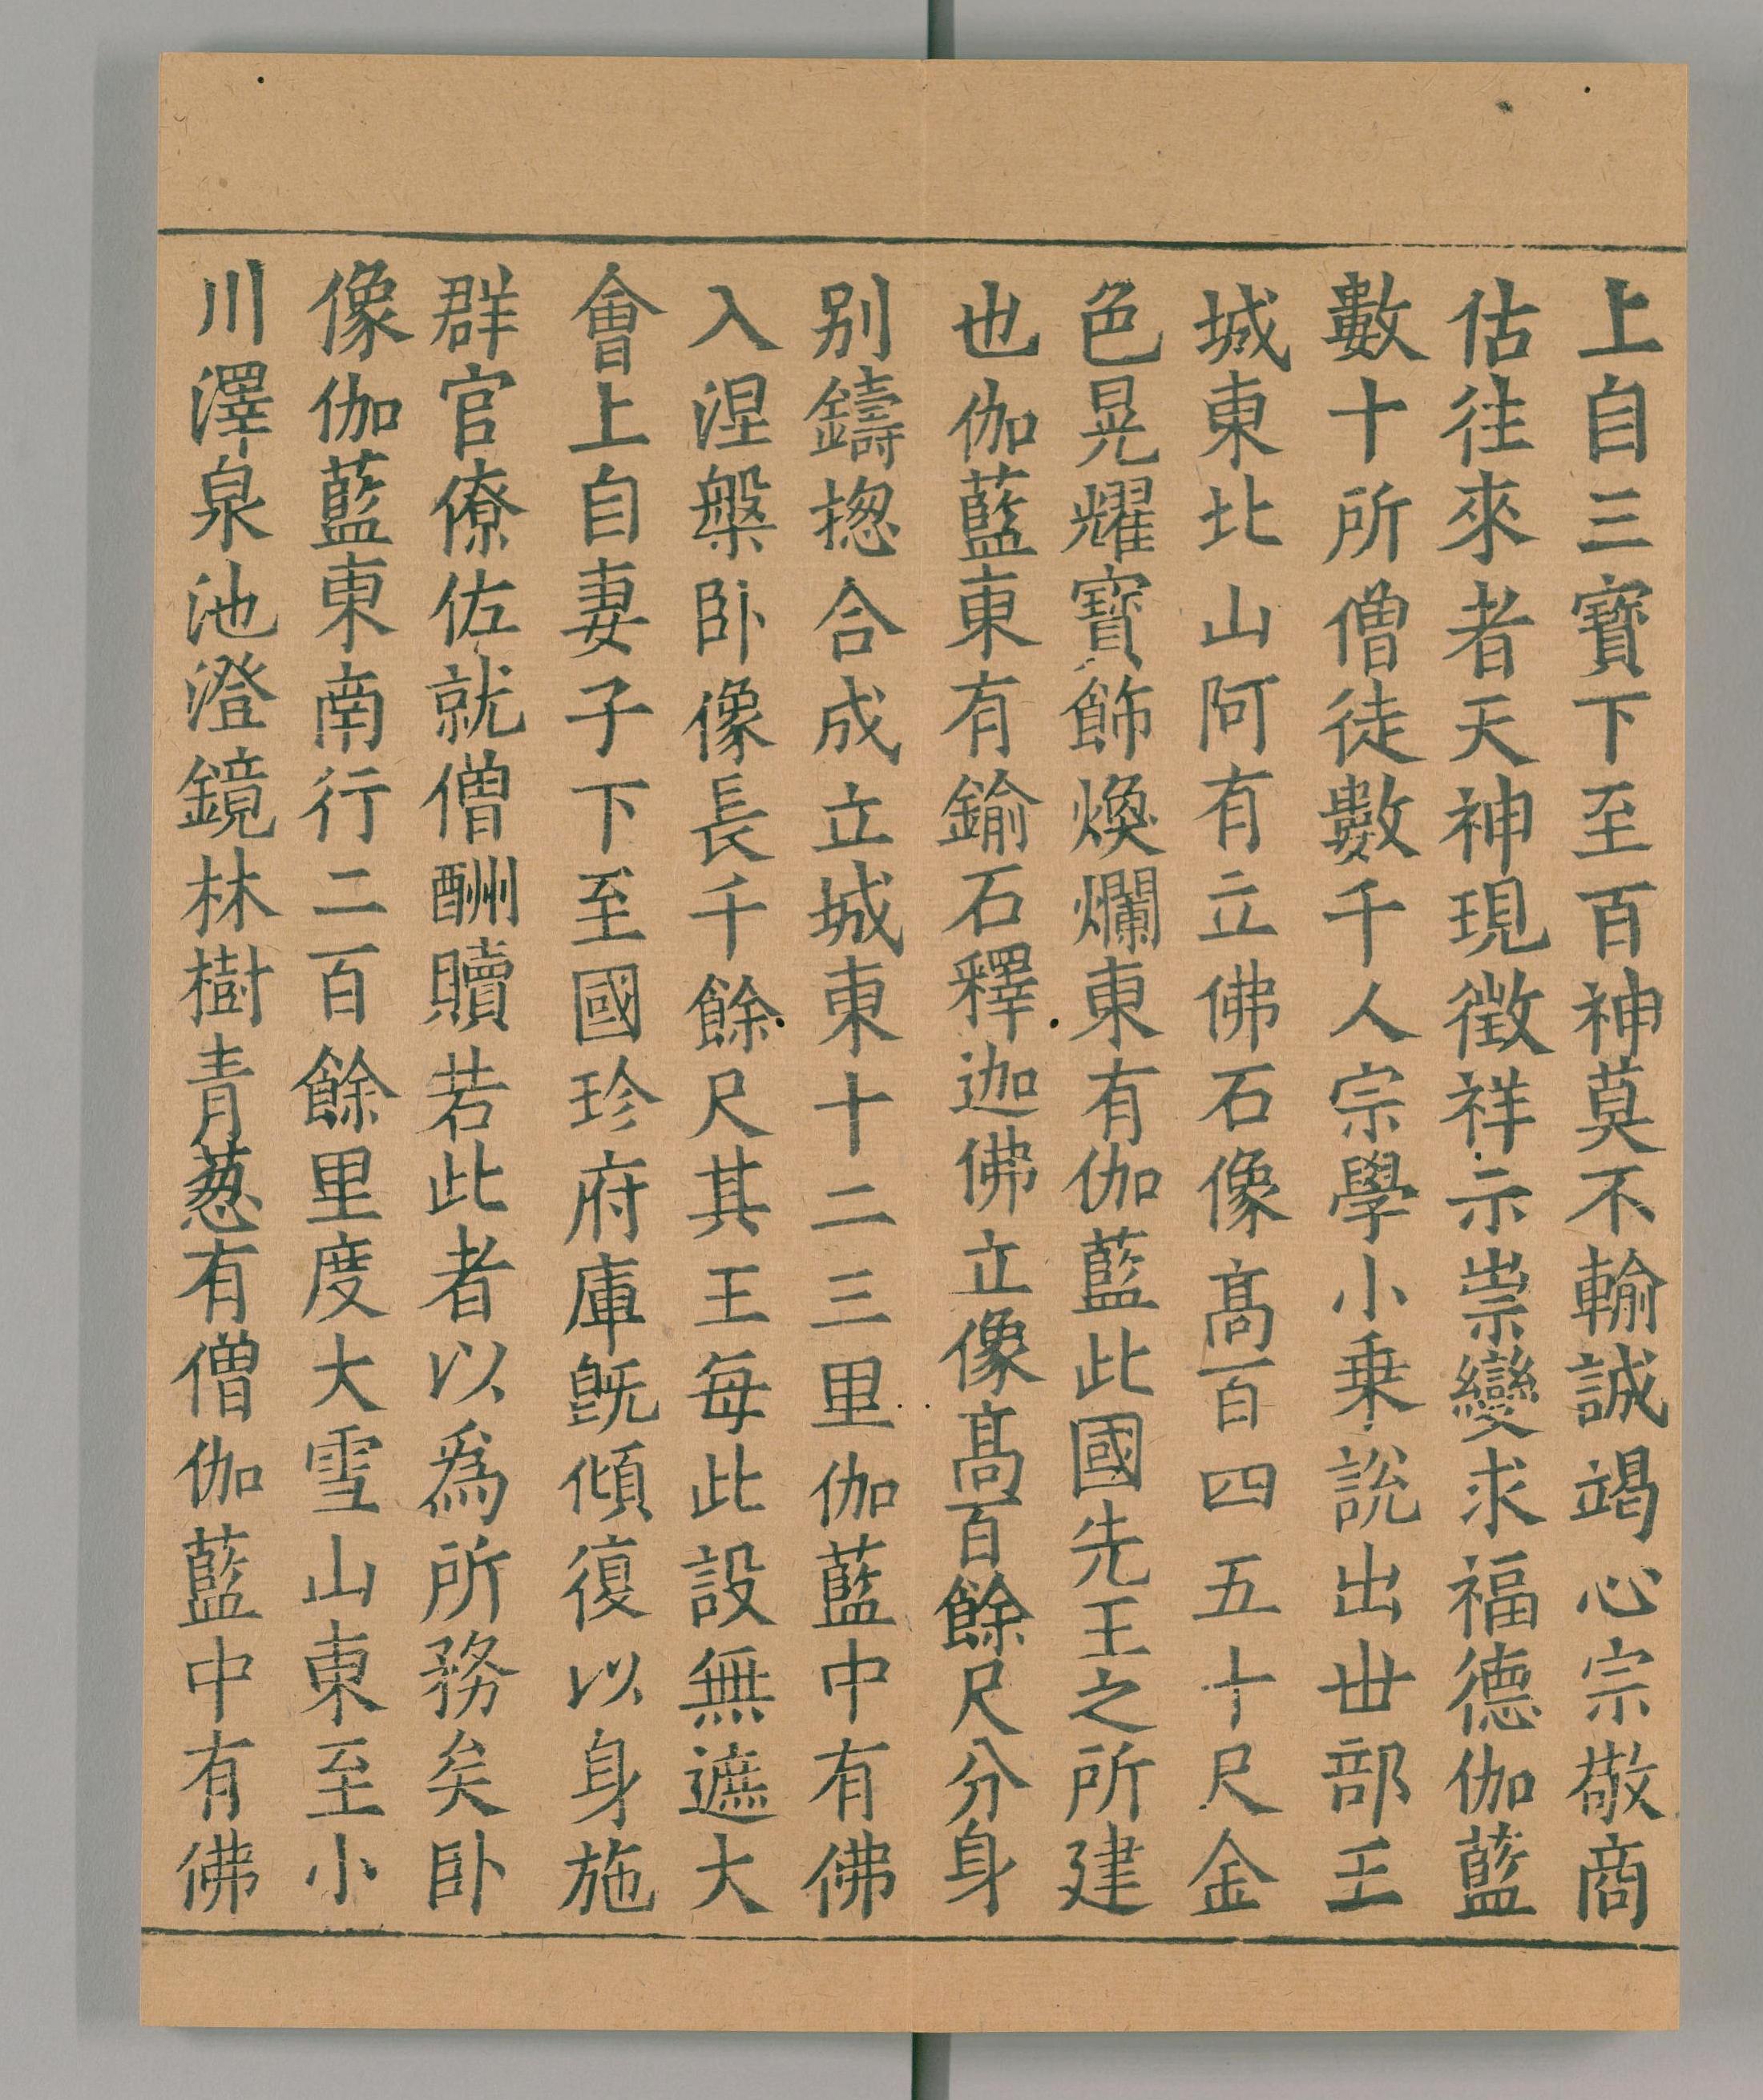 上自三寶下至百神莫不輸誠竭心宗敬商
估往來者天神現徵祥示崇變求福德伽藍
數十所僧徒數千人宗學小乗說出世部王
城東北山阿有立佛石像髙百四五十尺金
色晃耀寶飾煥爛東有伽藍此國先王之所建
也伽藍東有鍮石釋迦佛立像髙百餘尺分身
别鑄揔合成立城東十二三里伽藍中有佛
入涅槃卧像長千餘尺其王每此設無遮大
會上自妻子下至國珍府庫旣傾復以身施
群官僚佐就僧酬贖若此者以爲所務矣卧
像伽藍東南行二百餘里度大雪山東至小
川澤泉池澄鏡林樹青葱有僧伽藍中有佛